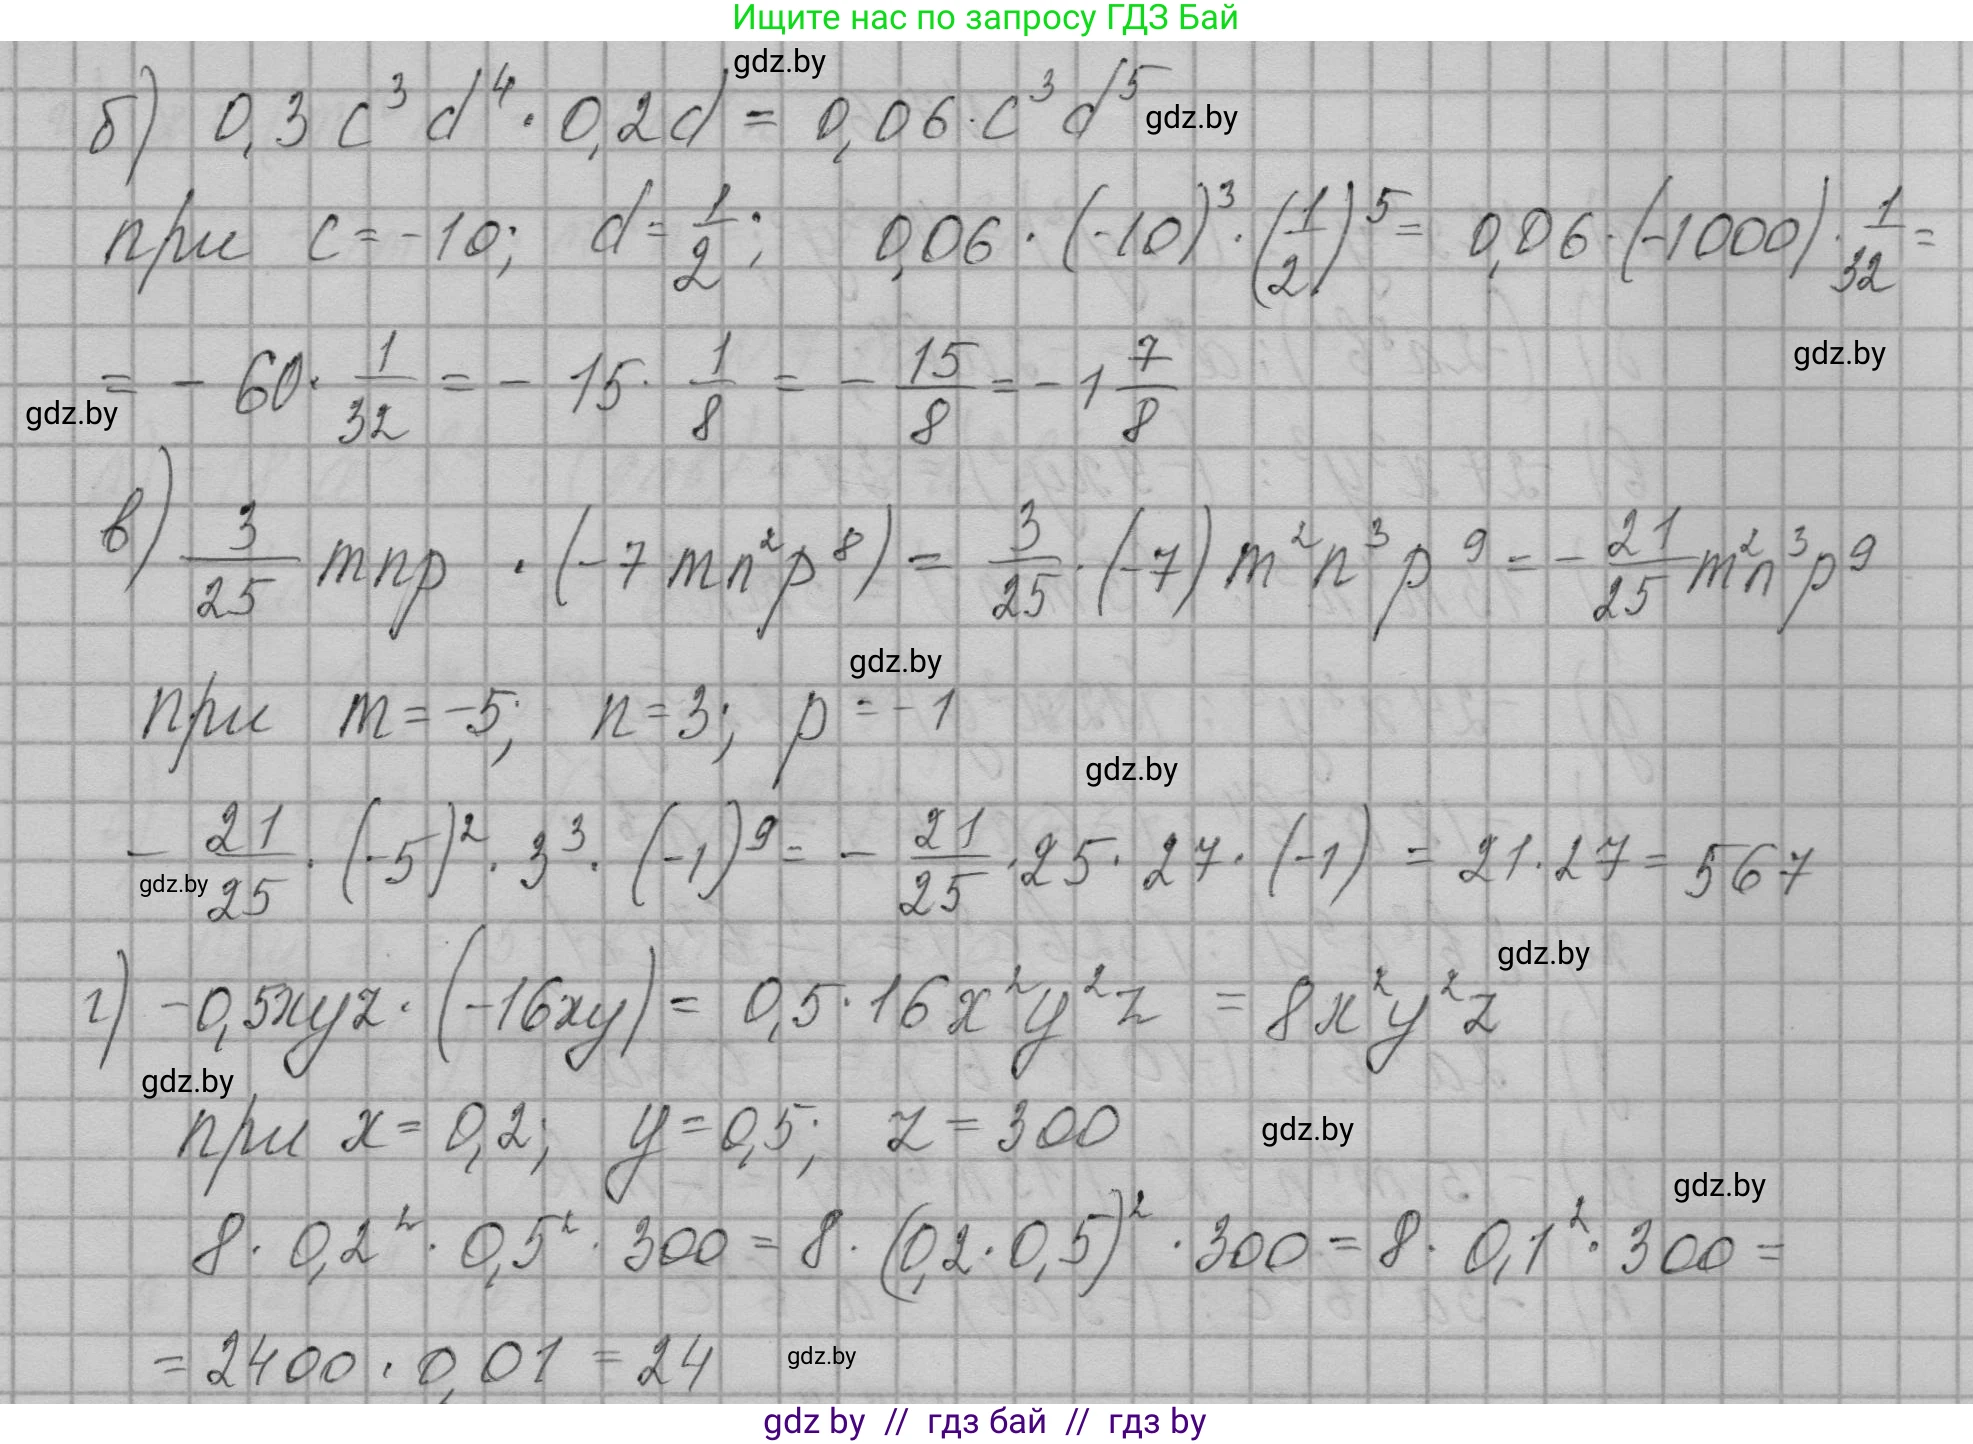 Ищите нас по запросу ГДЗ Бай
gdz.by
б) 0,3 c³ d⁴ · 0,2d = 0,06 · c³ d⁵
gdz.by
при c = -10; d = 1/2; 0,06 · (-10)³ · (1/2)⁵ = 0,06 · (-1000) · 1/32 =
gdz.by
= - 60 · 1/32 = - 15 · 1/8 = - 15/8 = - 1 7/8
gdz.by
в) 3/25 mnp · (-7 mn²p⁸) = 3/25 · (-7) m²n³p⁹ = - 21/25 m²n³p⁹
gdz.by
при m = -5; n = 3; p = -1
gdz.by
- 21/25 · (-5)² · 3³ · (-1)⁹ = - 21/25 · 25 · 27 · (-1) = 21 · 27 = 567
gdz.by
gdz.by
г) -0,5xyz · (-16xy) = 0,5 · 16x²y²z = 8x²y²z
gdz.by
при x = 0,2; y = 0,5; z = 300
gdz.by
gdz.by
8 · 0,2² · 0,5² · 300 = 8 · (0,2 · 0,5)² · 300 = 8 · 0,1² · 300 =
= 2400 · 0,01 = 24
gdz.by
gdz by // гдз бай // гдз by